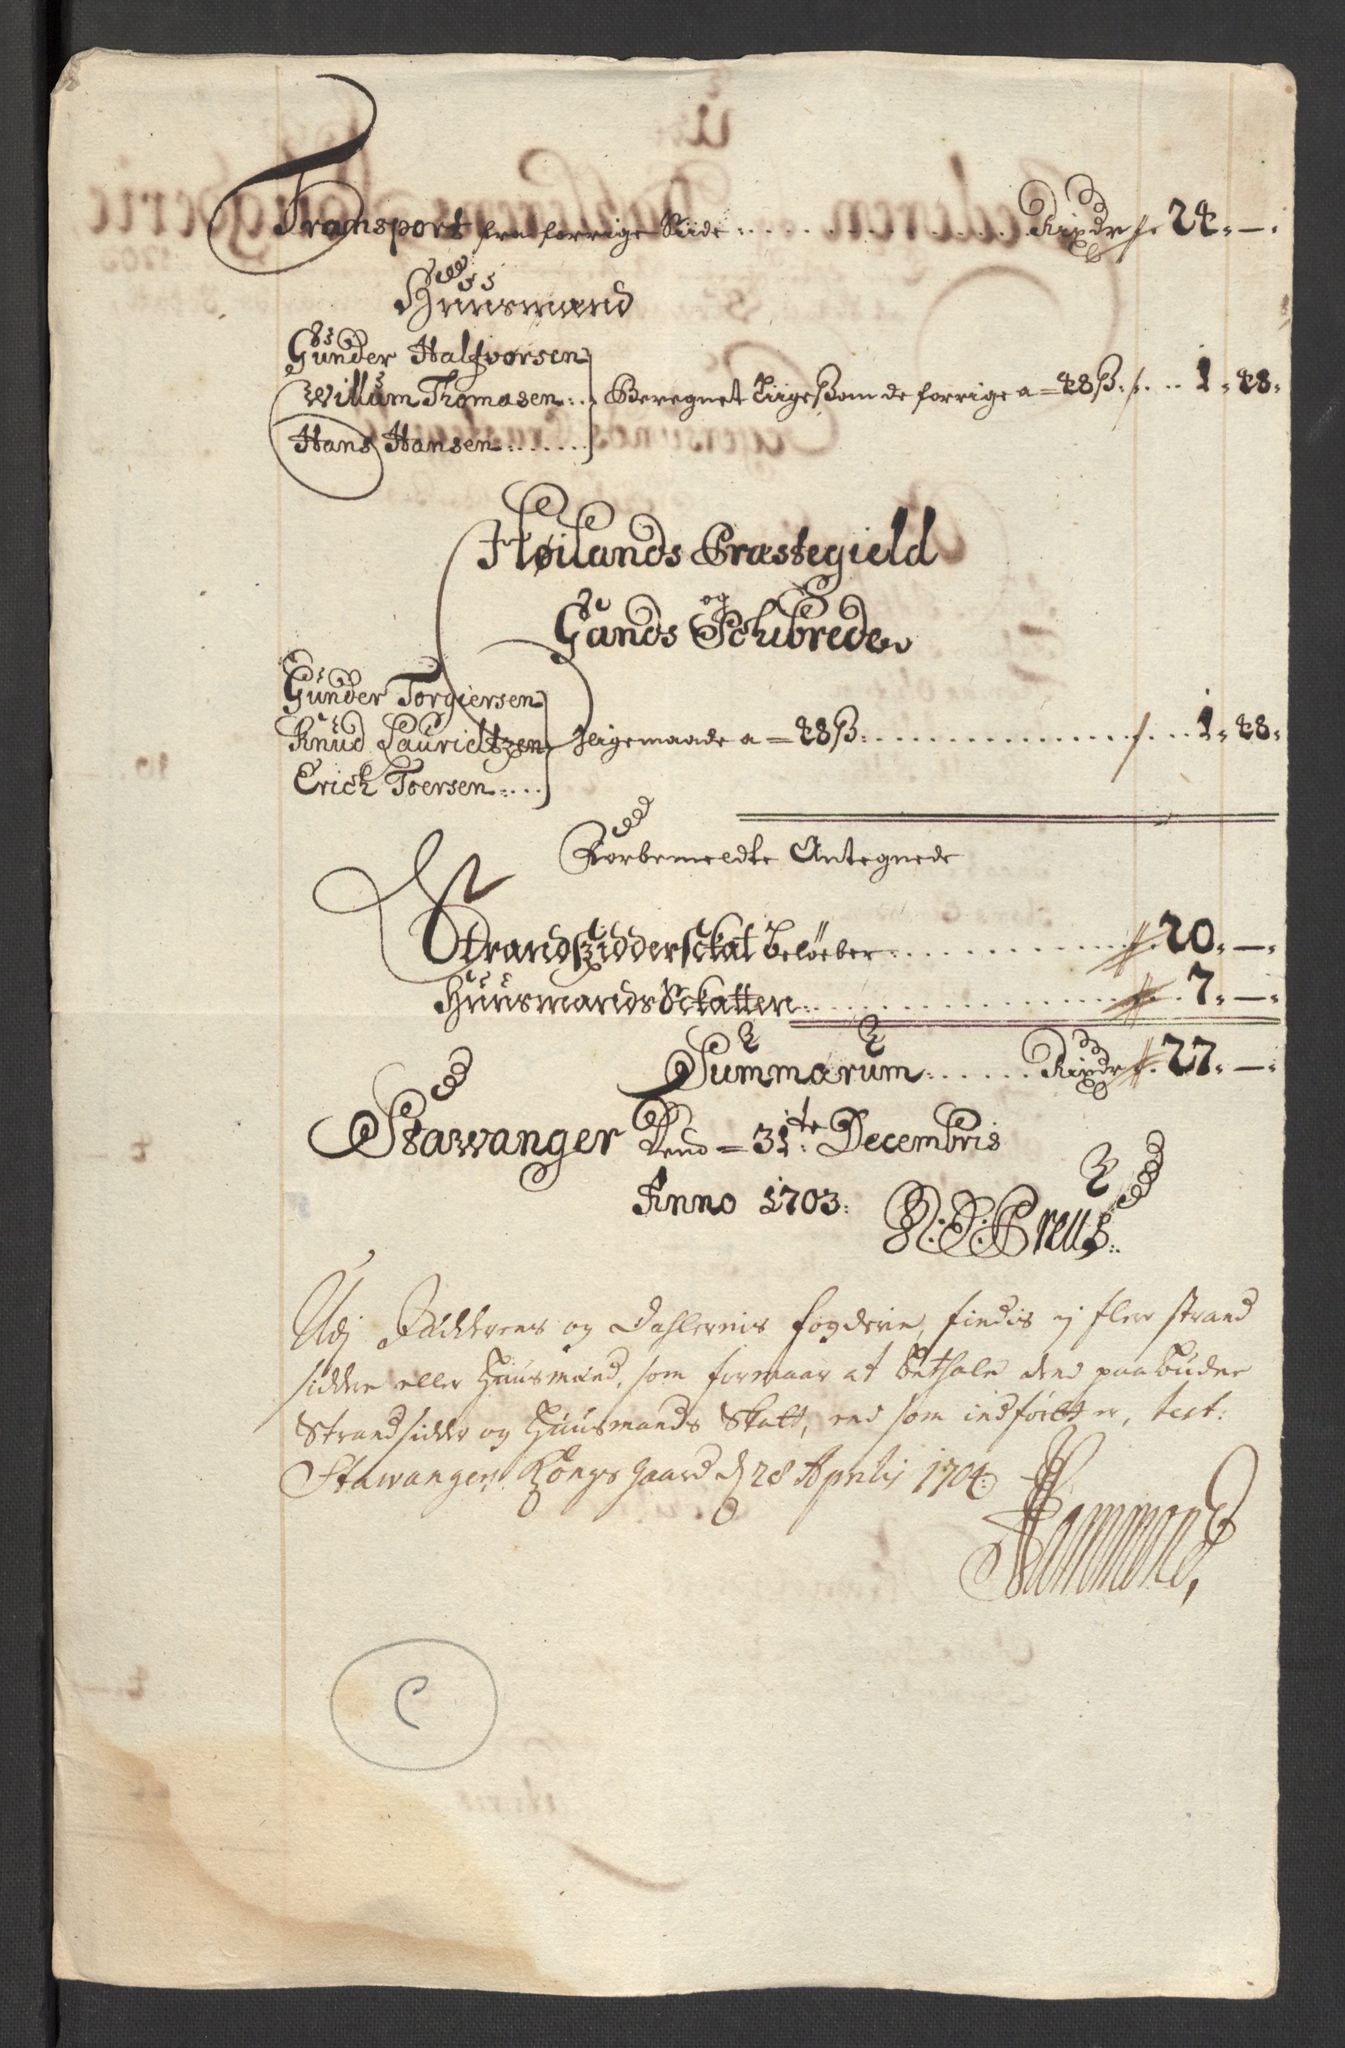 Transport fra forrige Siide . . . Rixdr 24 „ — „
Huusmænd
Gunder Halfvorsen
Willum Thomæsen . . Beregnet Liige som de forrige a = 48 ß . . 1 „ 48 „
Hans Hansen . . . .
Høilands Præstegield
og
Gands Schibrede
Gunder Torgiersen
Knud Lauridtzen Ligemaade a = 48 ß . . . 1 „ 48 „
Erich Toersen . . .
Forbemeldte Antegnede
Strandsidderschat beløber . . . 20 „ — „
Huusmands Schatten . . . 7 „ — „
Summarum . . . Rixdr 27 „ — „
Stawanger Dend = 31te Decembris
Anno 1703:
Udj Jædderens og Dahlernis fogderie, findis ej fler strand
sidder eller Huusmænd, som formaar at bethale dend paabudne
Strandsidder og Huusmands Skatt, end som indført er, test:
Stawanger Kongsgaard d 28 Aprilis 1704:
Hammond,